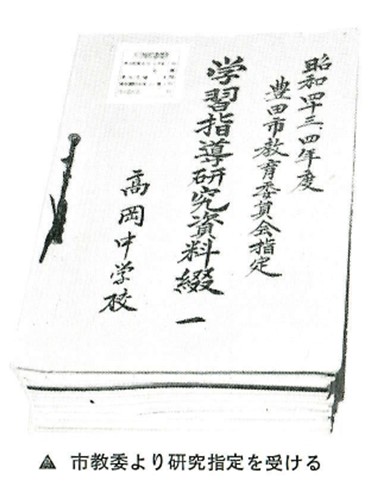 昭和四十三、四年度
豊田市教育委員会指定
学習指導研究資料綴 一
高岡中学校
▲ 市教委より研究指定を受ける